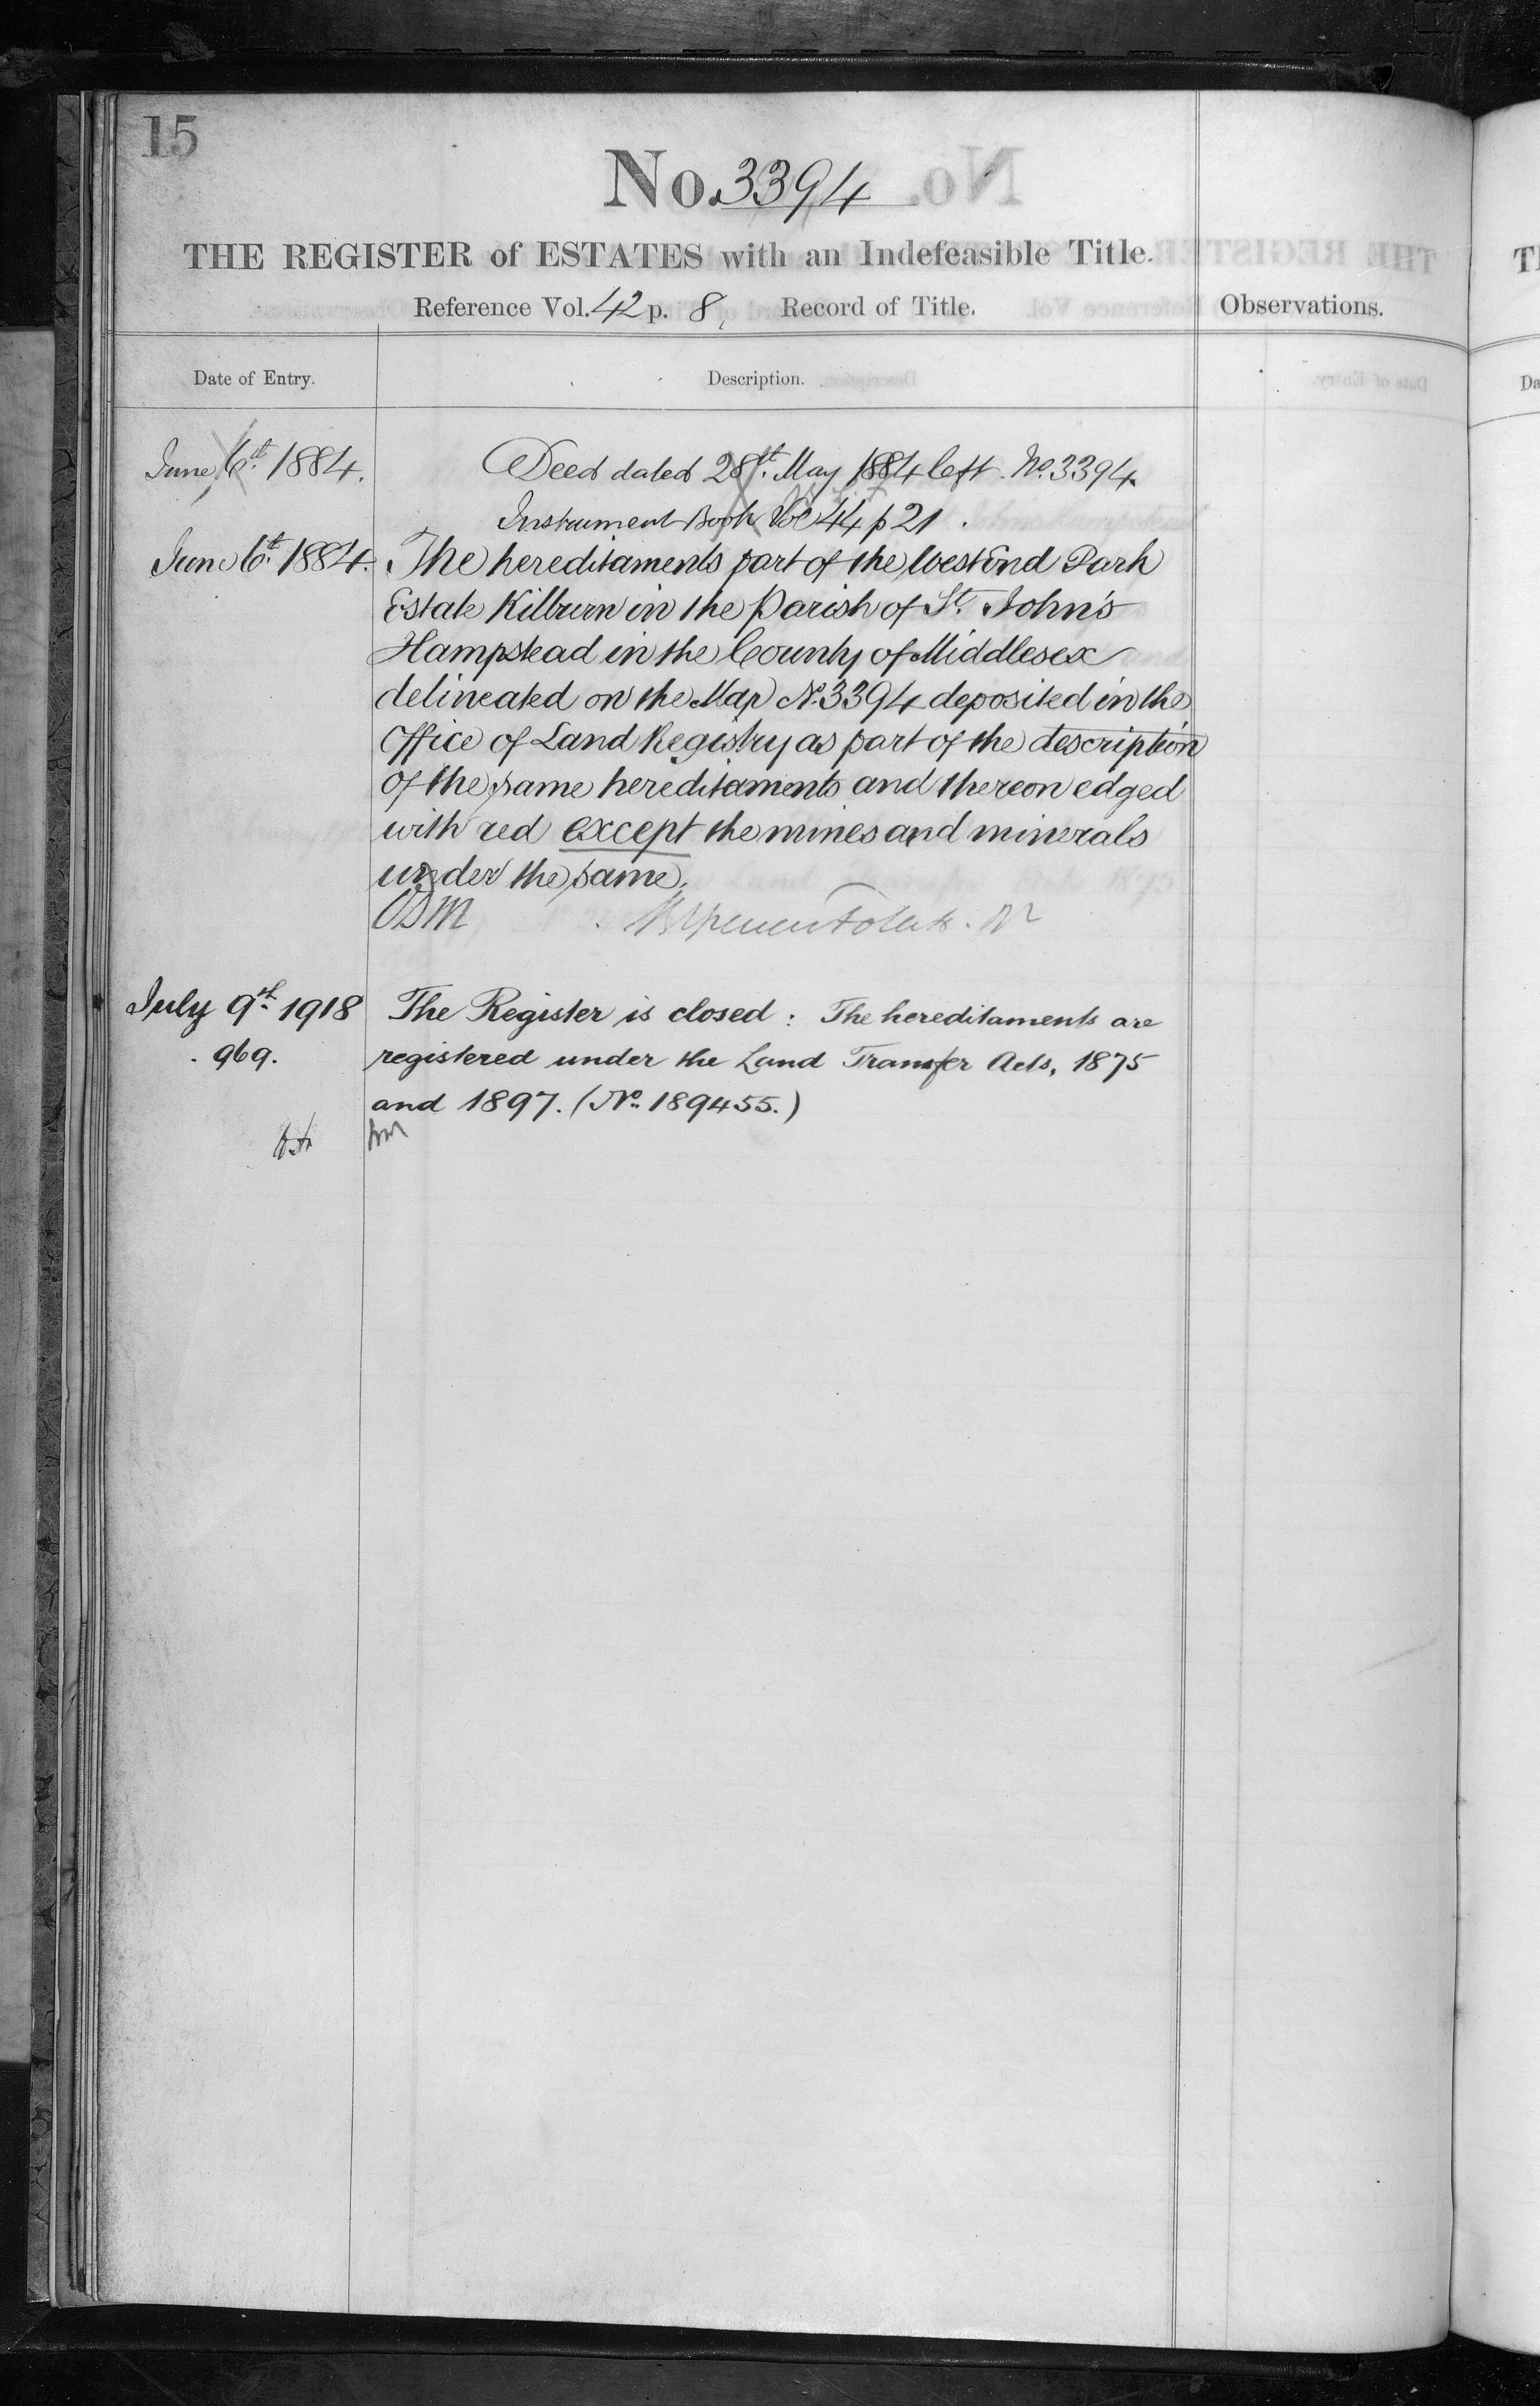 15
No. 3394
THE REGISTER of ESTATES with an Indefeasible Title.
Reference Vol. 42 p. 8, Record of Title.
Observations.
Date of Entry.
Description.
June 6th. 1884.
Deed dated 28th. May 1884 left No. 3394.
Instrument Book Vol 44 p 21.
June 6th. 1884.
The hereditaments part of the West End Park
Estate Kilburn in the Parish of St. John's
Hampstead in the County of Middlesex
delineated on the Map No. 3394 deposited in the
Office of Land Registry as part of the description
of the same hereditaments and thereon edged
with red except the mines and minerals
under the same.
July 9th. 1918
The Register is closed: The hereditaments are
969.
registered under the Land Transfer Acts, 1875
and 1897. (No. 189455.)